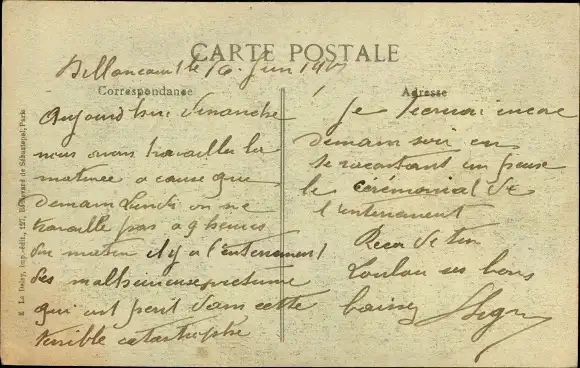 CARTE POSTALE
Billancourt le 16 Juin 19
Correspondance
Aujourd'hui Dimanche
nous avons travailler la
matinée a cause que
demain Lundi on ne
travaille pas a 9 heures
du matin il y a l'enterrement
des malheureuse victime
qui ont perit dans cette
terrible catastrophe
Adresse
Je t'ecrirai encore
demain soir en
te racontant un peu
le cérémonial de
l'enterrement
Recoi de ton
Loulou ses bons
baisers
E. Le Deley, imp.-édit., 127, Boulevard de Sébastopol, Paris